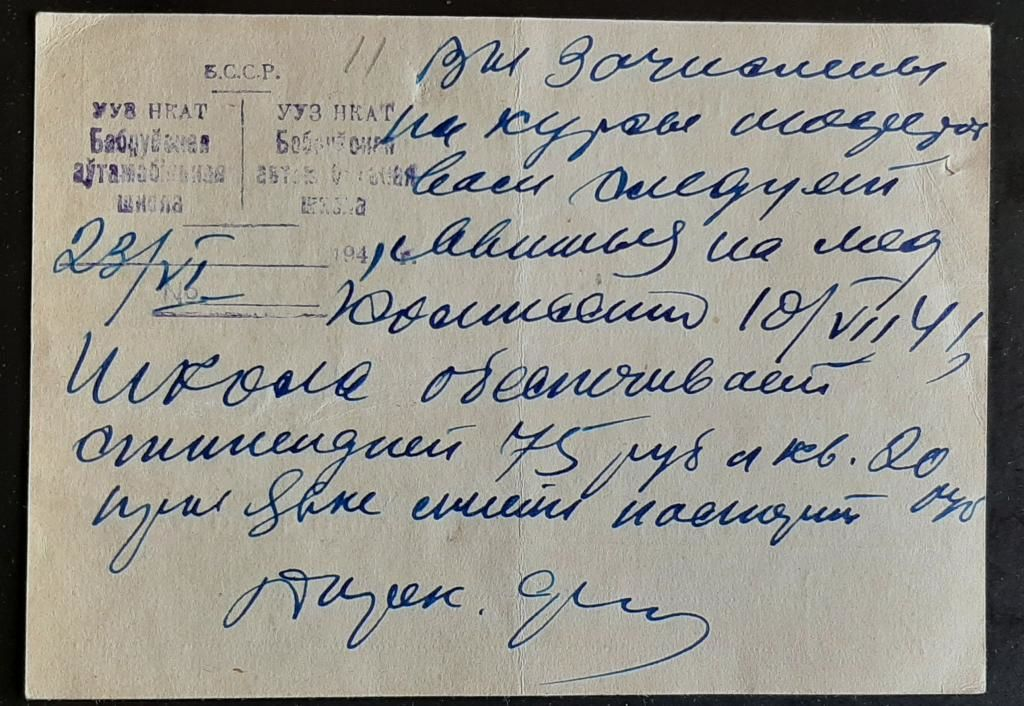 Б.С.С.Р.
УУЗ НКАТ
Бабруйская
аўтамабільная
школа
УУЗ НКАТ
Бобруйская
автомобильная
школа
23/VI 1941 г.
No
11
Вы Зачислены
на курсы
вам следует
явиться на мед
комиссию 10/VII 41,
Школа обеспечивает
стипендией 75 руб и кв. 20 руб
при явке иметь паспорт
Дирек.